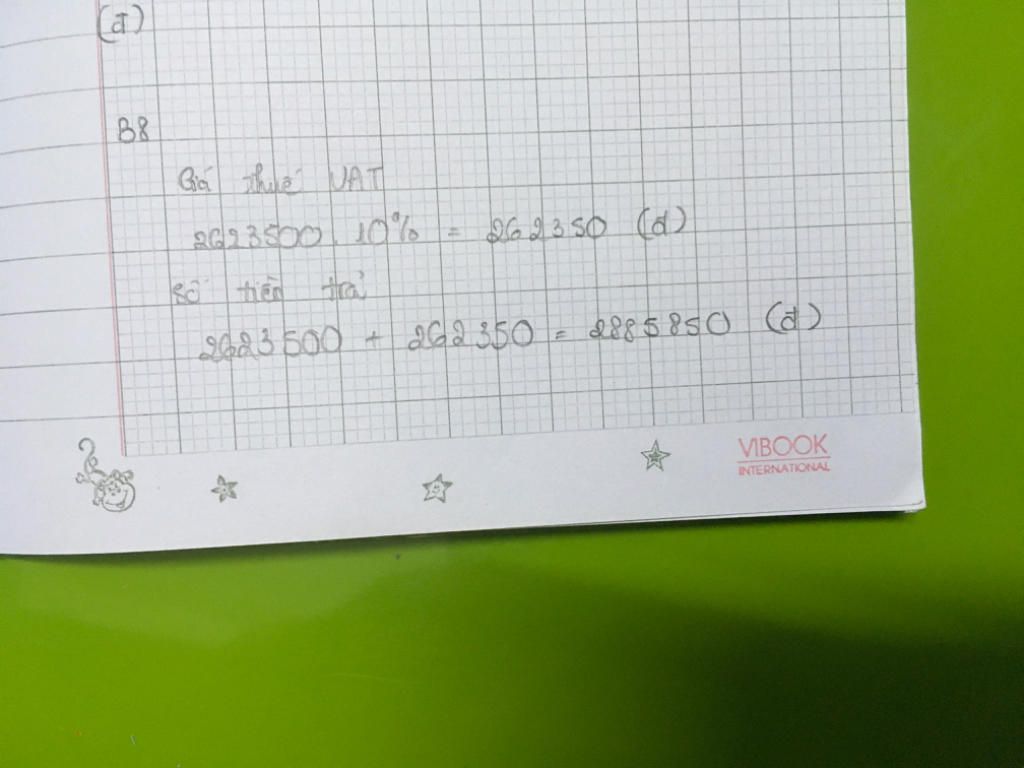 (đ)
B8
Giá thuế VAT
2623500.10% = 262350 (đ)
Số tiền trả
2623500 + 262350 = 2885850 (đ)
VIBOOK
INTERNATIONAL